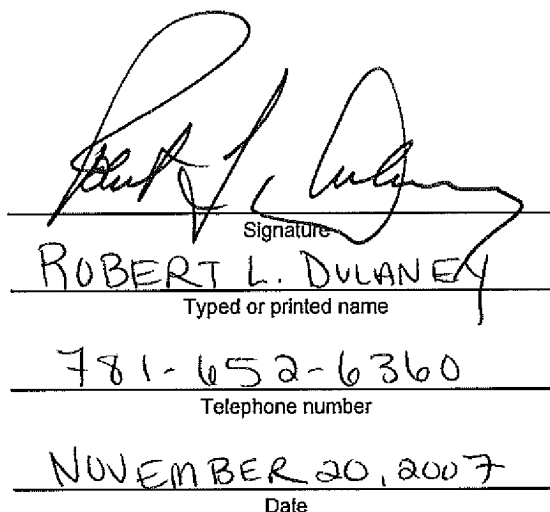 Robert L. Dulaney
Signature
ROBERT L. DULANEY
Typed or printed name
781-652-6360
Telephone number
NOVEMBER 20, 2007
Date